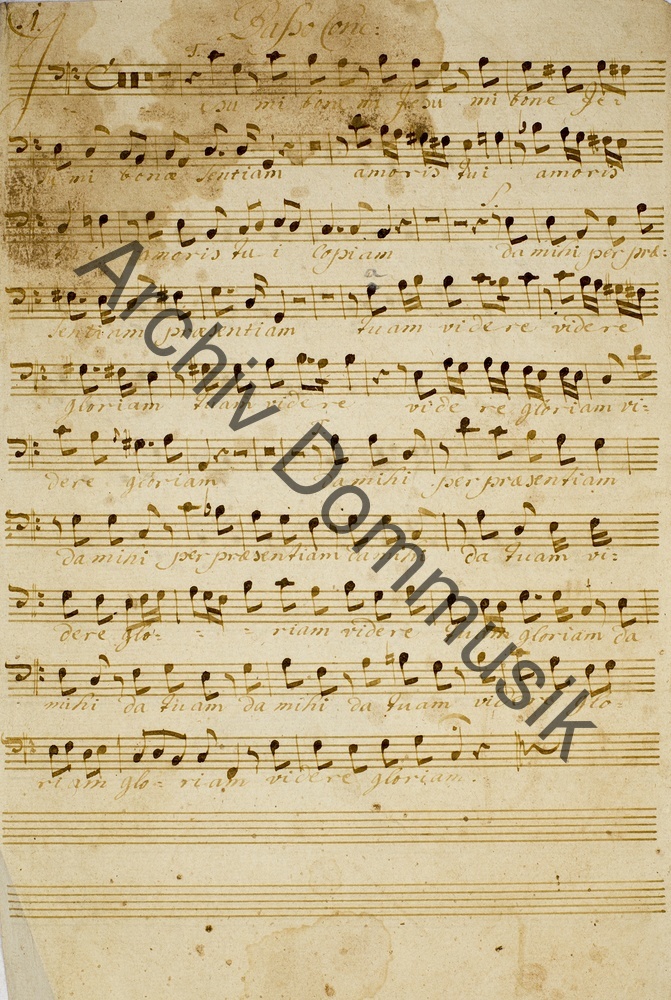 1.
Basso Conc:
T.
Jesu mi bone mi Jesu mi bone Je-
su mi bonæ sentiam amoris tui amoris
S.
amoris tu i Copiam da mihi per præ-
sentiam præsentiam tuam videre videre
gloriam tuam videre videre gloriam vi-
dere gloriam da mihi per præsentiam
da mihi per præsentiam da mihi da tuam vi-
dere glo- - - - riam videre tuam gloriam da
mihi da tuam da mihi da tuam videre glo-
riam glo- riam videre gloriam.
Archiv Dommusik